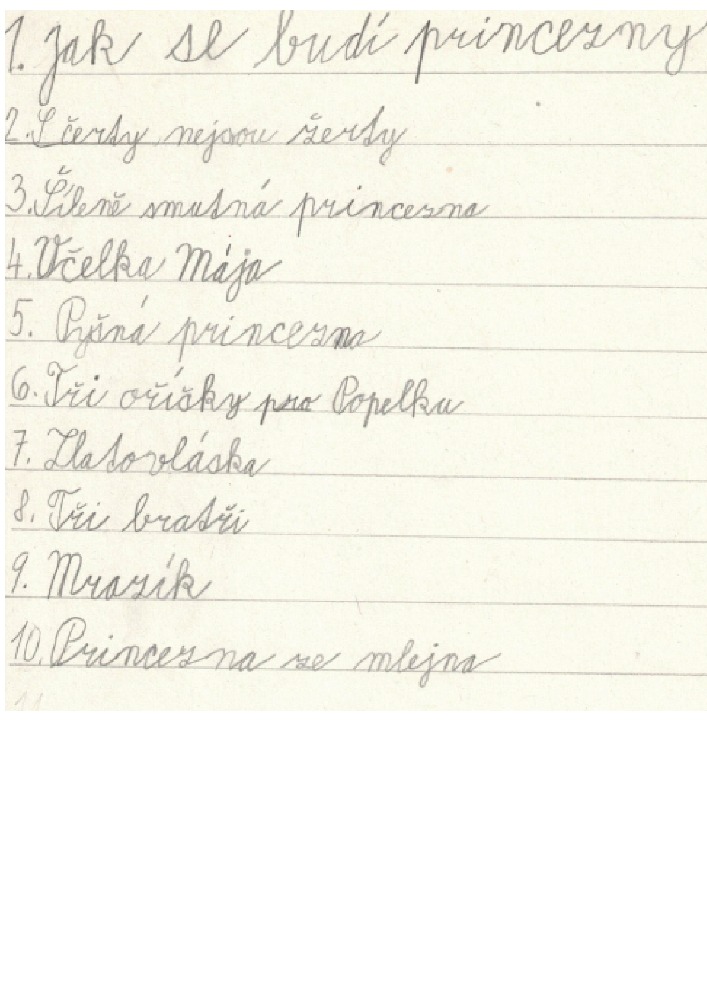 1. Jak se budí princezny
2. S čerty nejsou žerty
3. Šíleně smutná princezna
4. Včelka Mája
5. Pyšná princezna
6. Tři oříšky pro Popelku
7. Zlatovláska
8. Tři bratři
9. Mrazík
10. Princezna ze mlejna
11